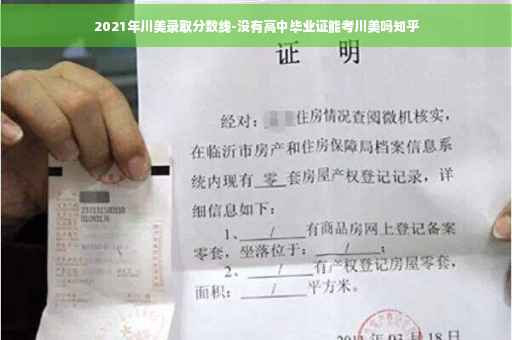 2021年川美录取分数线-没有高中毕业证能考川美吗知乎
证 明
经对：住房情况查阅微机核实，
在临沂市房产和住房保障局档案信息系
统内现有 零 套房屋产权登记记录，详
细信息如下：
1、 / 有商品房网上登记备案
零套，坐落位于： / ；
2、 / 有产权登记房屋零套，
面积： / 平方米。
月 18 日